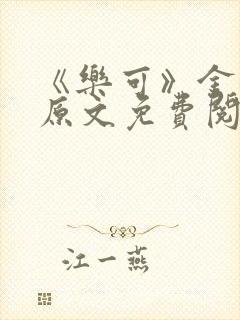 《樂可》全
原文免費閱
江一燕